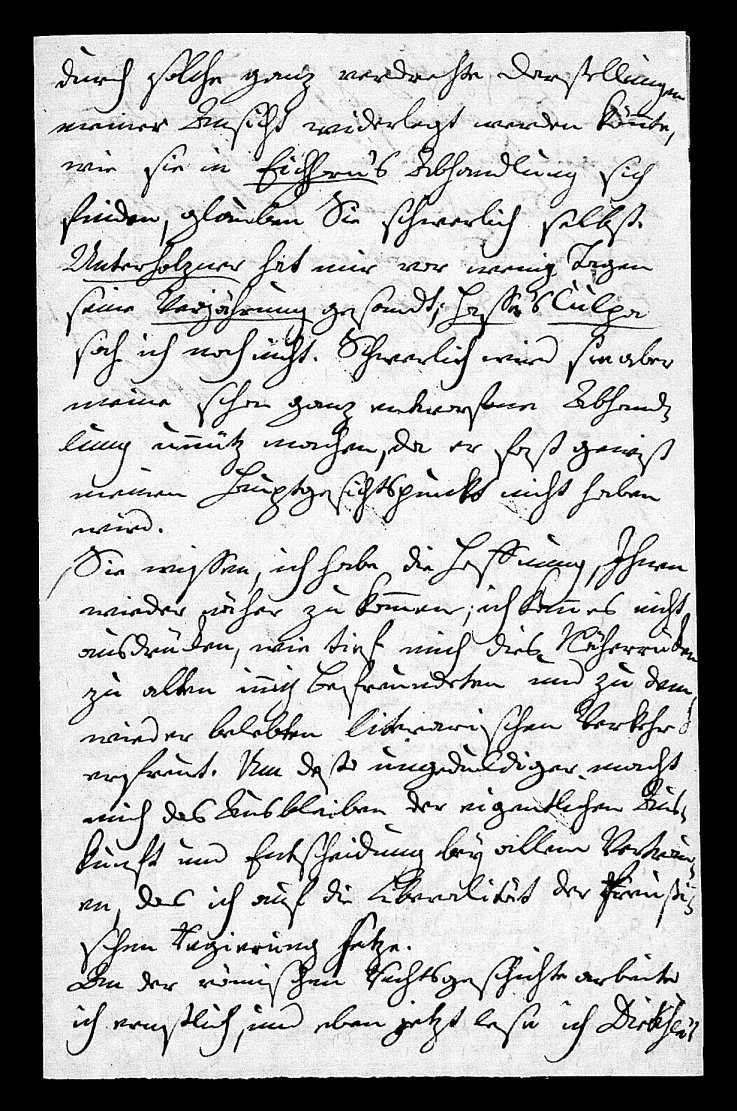 durch solche ganz verdrehte Darstellungen
meiner Ansicht widerlegt werden könnte,
wie sie in Eichhorn's Abhandlung sich
finden, glauben Sie schwerlich selbst.
Unterholzner hat mir vor wenig Tagen
seine Verjährung gesandt; Hasse's Culpa
sah ich noch nicht. Schwerlich wird sie aber
meine schon ganz entworfene Abhand¬
lung unnütz machen, da er fast gewiß
meinen Hauptgesichtspunkt nicht haben
wird.
Sie wissen, ich habe die Hoffnung, Ihnen
wieder näher zu kommen; ich kann es nicht
ausdrücken, wie tief mich dies Näherrücken
zu alten innig Befreundeten und zu dem
wieder belebten literarischen Verkehr
erfreut. Um desto ungeduldiger macht
mich das Ausbleiben der eigentlichen Aus¬
kunft und Entscheidung bey allem Vertrau¬
en, das ich auf die Liberalität der Preußi¬
schen Regierung setze.
An der römischen Rechtsgeschichte arbeite
ich ernstlich, und eben jetzt lese ich Dirksen's